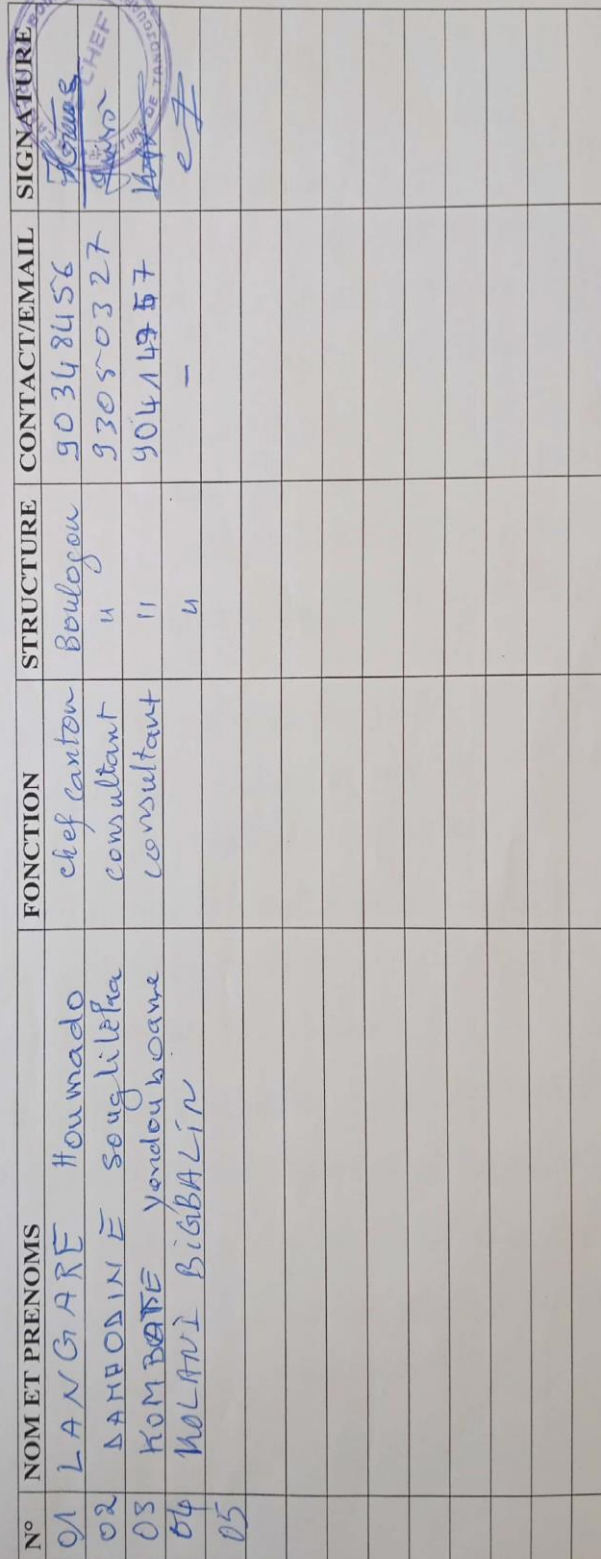 N° NOM ET PRENOMS FONCTION STRUCTURE CONTACT/EMAIL SIGNATURE
01 LANGARE Houmado chef canton Boulogou 90348456
02 consultant " 93050327
03 KOMBATE Yendouboame consultant " 
04 KOLANI BiGBALIN " -
05
CHEF